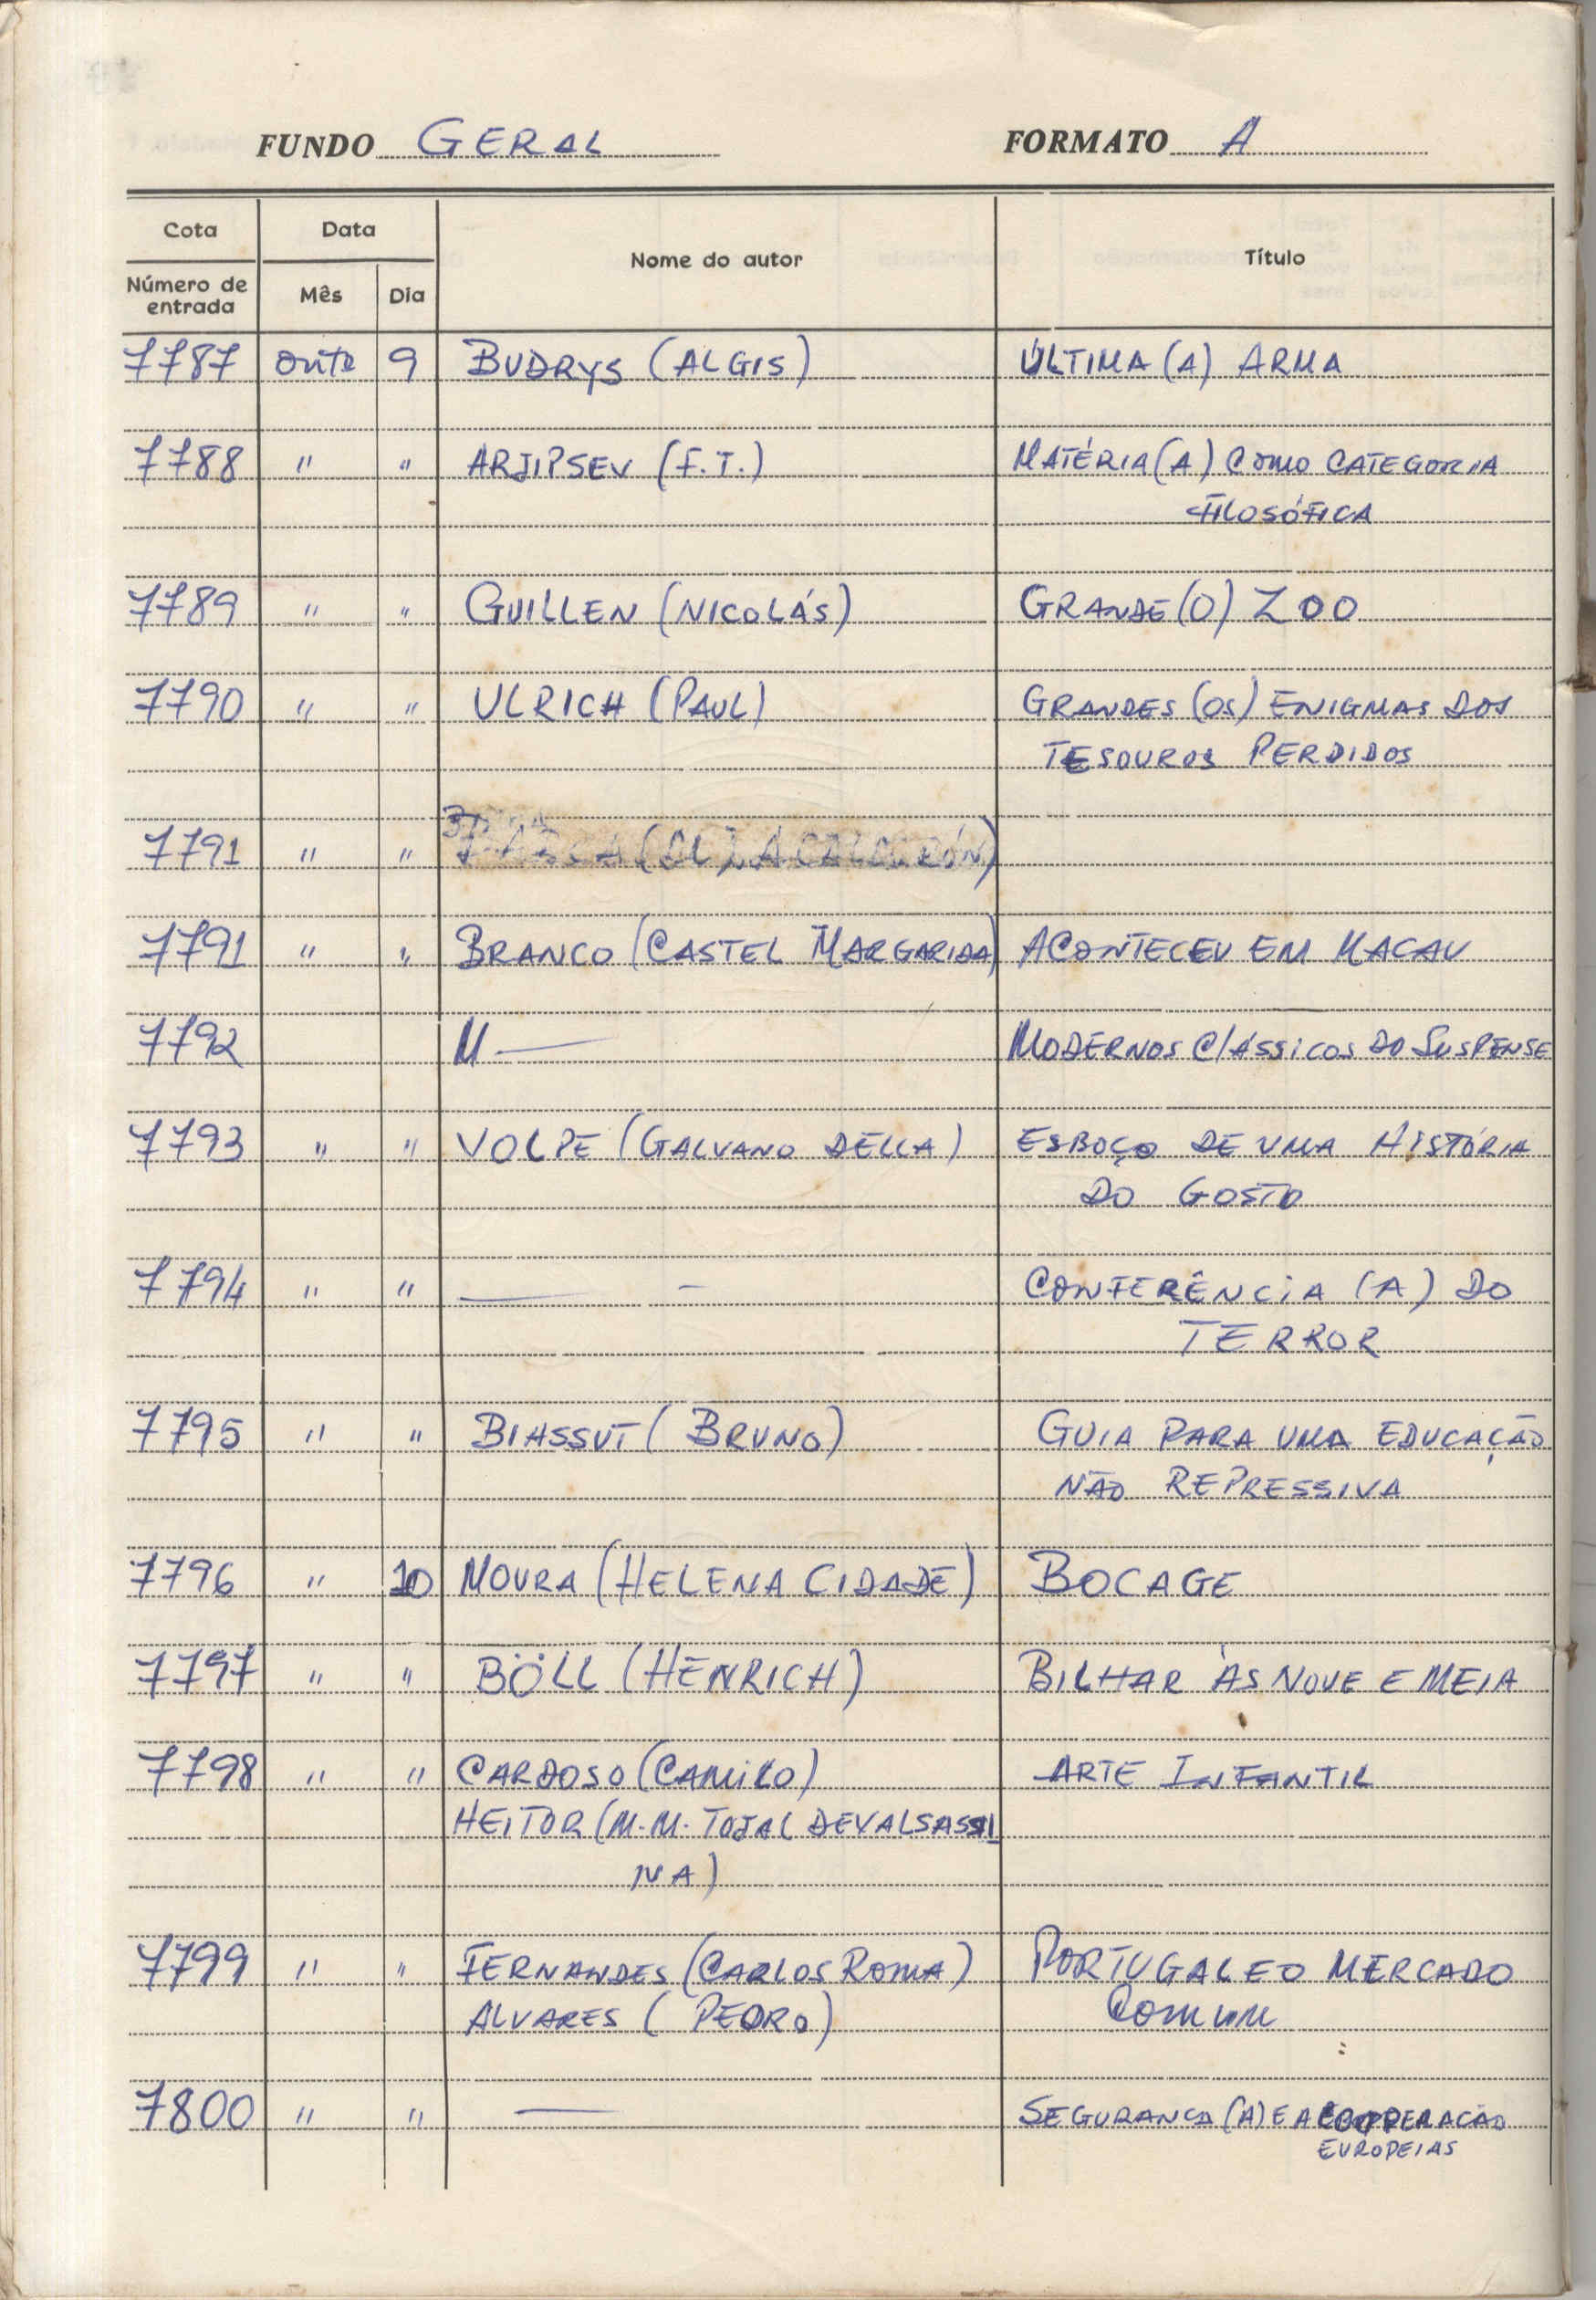 FUNDO GERAL FORMATO A
Cota Data Nome do autor Título
Número de entrada Mês Dia
7787 outº 9 BUDRYS (ALGIS) ÚLTIMA (A) ARMA
7788 " " ARJIPSEV (F.T.) MATÉRIA (A) COMO CATEGORIA
FILOSÓFICA
7789 " " GUILLEN (NICOLÁS) GRANDE (O) ZOO
7790 " " ULRICH (PAUL) GRANDES (OS) ENIGMAS DOS
TESOUROS PERDIDOS
7791 " "
7791 " " BRANCO (CASTEL MARGARIDA) ACONTECEU EM MACAU
7792 M — MODERNOS CLÁSSICOS DO SUSPENSE
7793 " " VOLPE (GALVANO DELLA) ESBOÇO DE UMA HISTÓRIA
DO GOSTO
7794 " " — - CONFERÊNCIA (A) DO
TERROR
7795 " " BIASSUT (BRUNO) GUIA PARA UMA EDUCAÇÃO
NÃO REPRESSIVA
7796 " 10 MOURA (HELENA CIDADE) BOCAGE
7797 " " BÖLL (HENRICH) BILHAR ÀS NOVE E MEIA
7798 " " CARDOSO (CAMILO) ARTE INFANTIL
HEITOR (M.M. TOJAL DEVALSASSI
NA)
7799 " " FERNANDES (CARLOS ROMA) PORTUGAL E O MERCADO
ALVARES (PEDRO) COMUM
7800 " " — SEGURANÇA (A) E A COOPERAÇÃO
EUROPEIAS